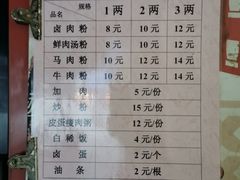 规格 1 两 2 两 3 两
品名
卤 肉 粉 8 元 10 元 12 元
鲜肉汤粉 8 元 10 元 12 元
马 肉 粉 10 元 12 元 14 元
牛 肉 粉 10 元 12 元 14 元
加 肉 5 元/份
炒 粉 15 元/份
皮蛋瘦肉粥 12 元/份
白 稀 饭 2 元/份
卤 蛋 2 元/个
油 条 2 元/根